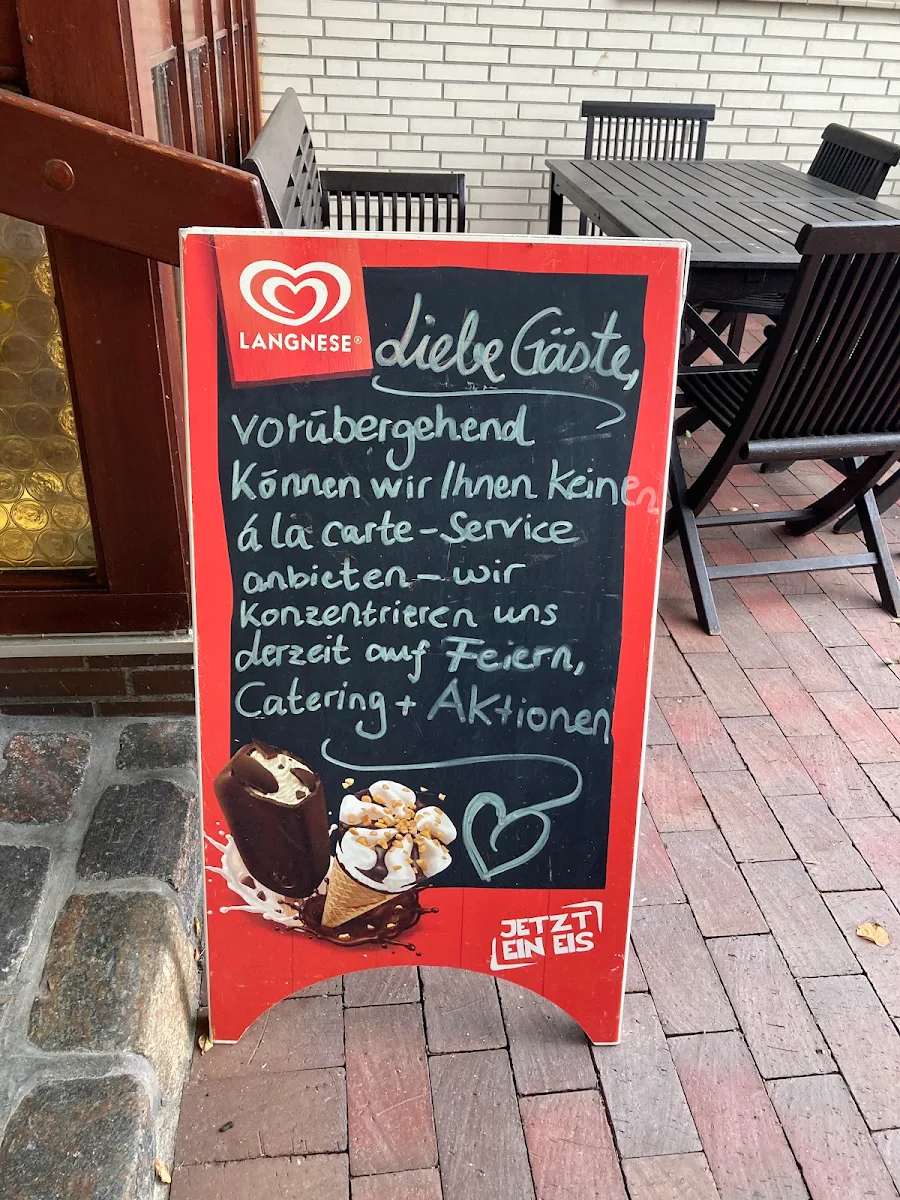 LANGNESE®
Liebe Gäste,
vorübergehend
Können wir Ihnen keinen
á la carte-Service
anbieten - wir
Konzentrieren uns
derzeit auf Feiern,
Catering + Aktionen
JETZT
EIN EIS